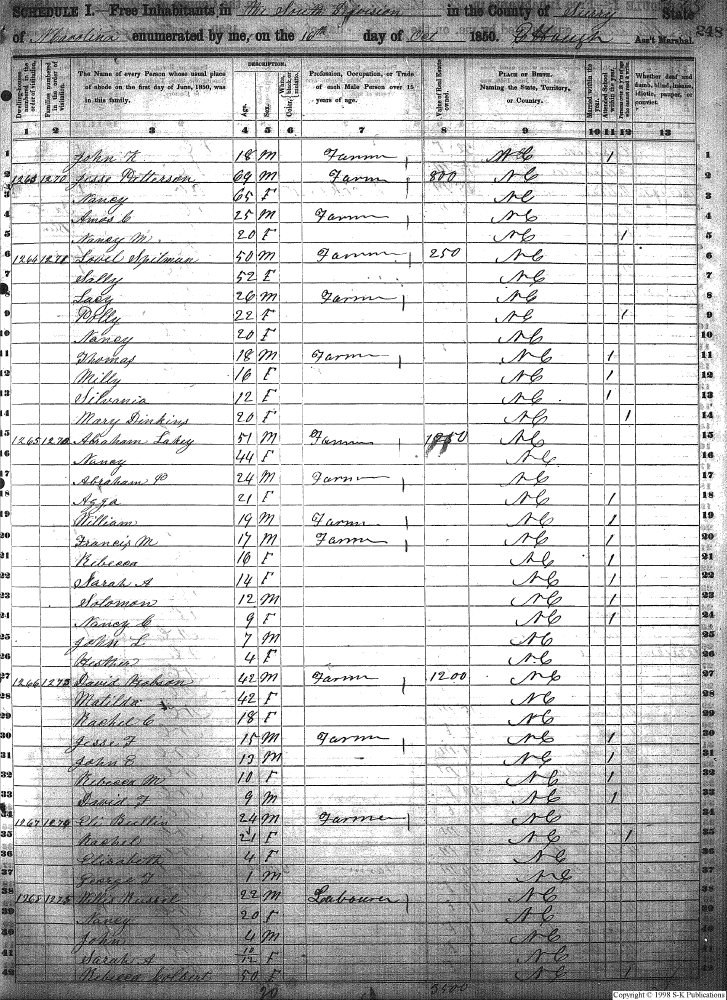 SCHEDULE I.—Free Inhabitants in The South Division in the County of Surry State
of N Carolina enumerated by me, on the 16th day of Oct 1850. Ass't Marshal. 248
Dwelling-houses numbered in the order of visitation.
Families numbered in the order of visitation.
The Name of every Person whose usual place of abode on the first day of June, 1850, was in this family.
DESCRIPTION.
Age.
Sex.
Color, White, black, or mulatto.
Profession, Occupation, or Trade of each Male Person over 15 years of age.
Value of Real Estate owned.
PLACE OF BIRTH.
Naming the State, Territory, or Country.
Married within the year.
Attended School within the year.
Whether deaf and dumb, blind, insane, idiotic, pauper, or convict.
1 2 3 4 5 6 7 8 9 10 11 12 13
1 John 18 M Farmer NC 1 1
2 1263 1270 Jesse Patterson 69 M Farm 800 NC 2
3 Nancy 65 F NC 3
4 Amos C 25 M Farm NC 4
5 Nancy M 20 F NC 1 5
6 1264 1271 Lovel Spilman 50 M Farmer 250 NC 6
7 Sally 52 F NC 7
8 Lacy 26 M Farm NC 8
9 Polly 22 F NC 1 9
10 Nancy 20 F NC 10
11 Thomas 18 M Farm NC 1 11
12 Milly 16 F NC 1 12
13 Silvania 12 F NC 1 13
14 Mary Dinkins 20 F NC 1 14
15 1265 1272 Abraham Lakey 51 M Farmer 1250 NC 15
16 Nancy 44 F NC 16
17 Abraham P 24 M Farm NC 17
18 Agga 21 F NC 1 18
19 William 19 M Farm NC 1 19
20 Francis M 17 M Farm NC 1 20
21 Rebecca 16 F NC 1 21
22 Sarah A 14 F NC 1 22
23 Solomon 12 M NC 1 23
24 Nancy C 9 F NC 1 24
25 John L 7 M NC 25
26 4 F NC 26
27 1266 1273 David Hobson 42 M Farm 1200 NC 27
28 Matilda 42 F NC 28
29 Rachel C 18 F NC 29
30 Jesse F 15 M Farm NC 1 30
31 John E 13 M NC 1 31
32 Rebecca M 10 F NC 1 32
33 David F 9 M NC 1 33
34 1267 1274 Eli 24 M Farmer NC 34
35 Rachel 21 F NC 1 35
36 Elizabeth 4 F NC 36
37 George F 1 M NC 37
38 1268 1275 Russel 22 M Labourer NC 38
39 Nancy 20 F NC 39
40 John 4 M NC 40
41 Sarah A 10/12 F NC 41
42 Rebecca 50 F NC 1 42
3500
Copyright © 1998 S-K Publications